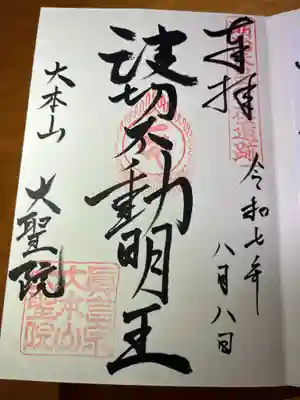 奉拝
令和七年
八月八日
波切不動明王
大本山
大聖院
真言宗
大本山
大聖院